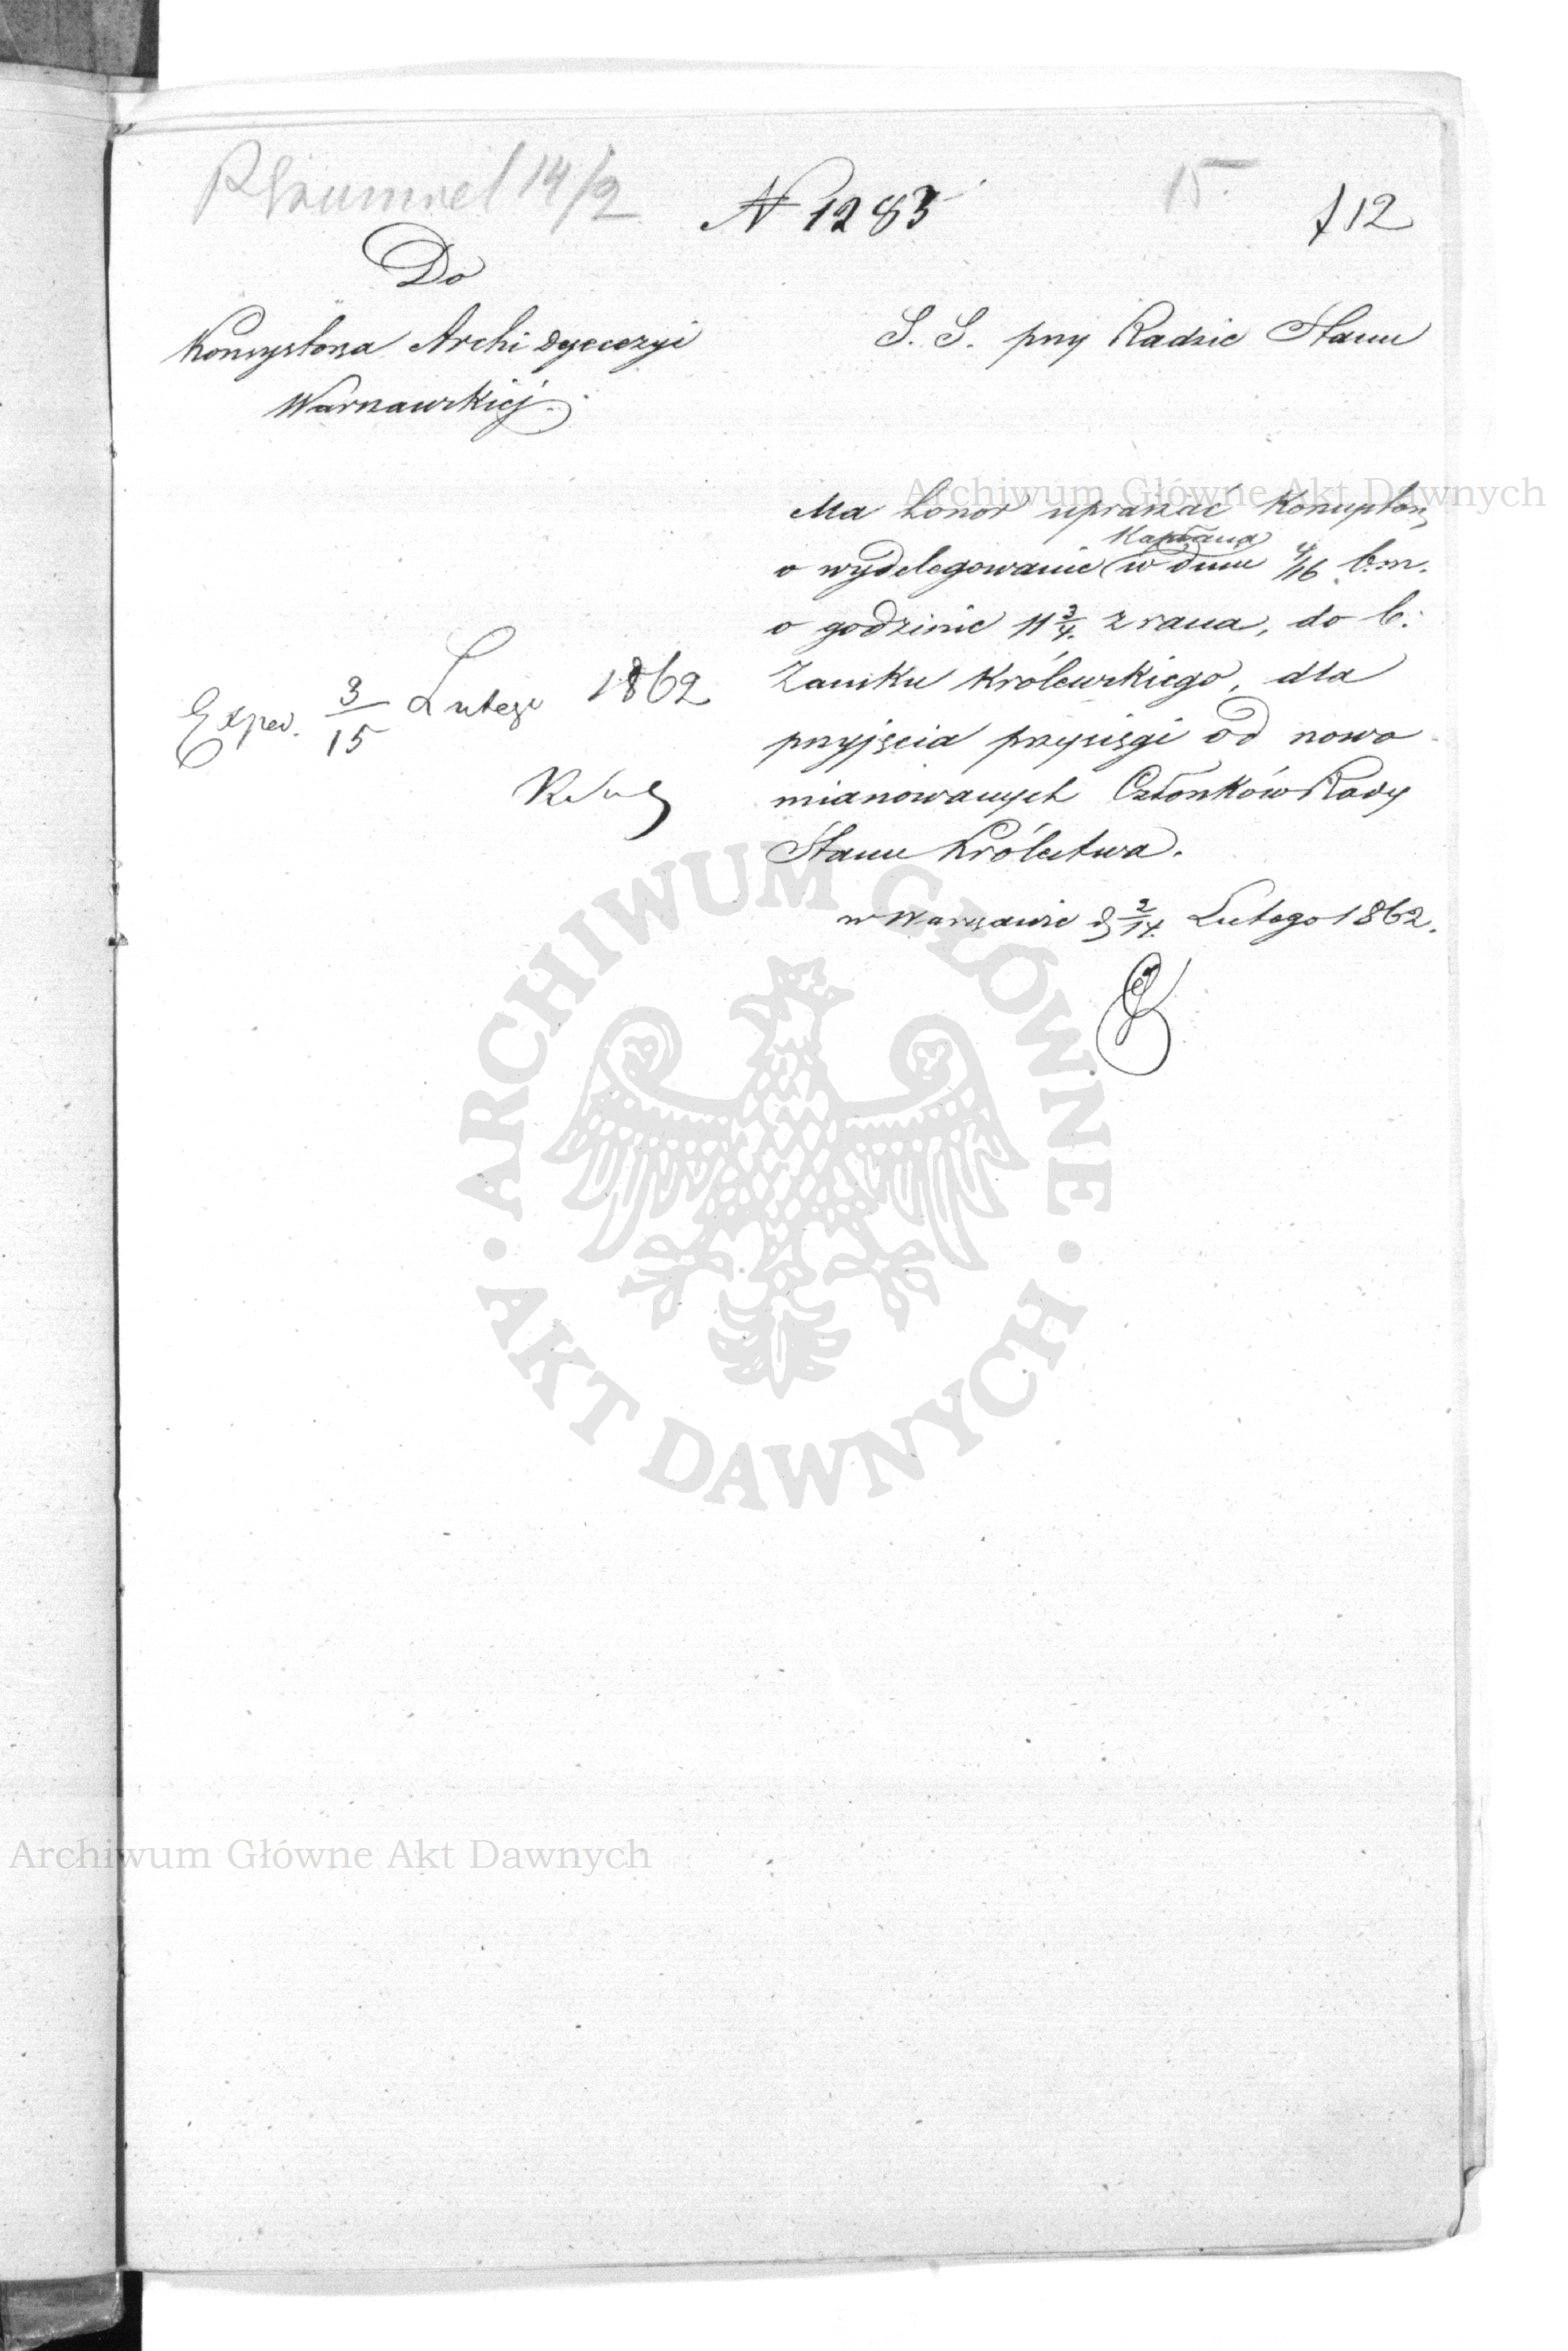 14/2
N 1283
15.
f 12
Do
Konsystorza Archi Dyecezyi
Warszawskiej.
S. S. przy Radzie Stanu
Ma honor upraszać Konsystorz,
Kapłana
o wydelegowanie w dniu 4/16 b.m.
o godzinie 11 3/4 z rana, do b:
Zamku Królewskiego, dla
przyjęcia przysięgi od nowo
mianowanych Członków Rady
Stanu Królestwa.
w Warszawie d 2/14 Lutego 1862.
Exped. 3/15 Lutego 1862
Archiwum Główne Akt Dawnych
ARCHIWUM GŁÓWNE
AKT DAWNYCH
Archiwum Główne Akt Dawnych